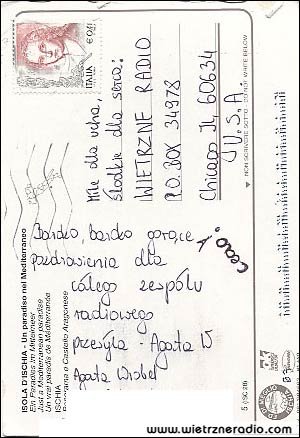 ITALIA
€ 0,41
Miłe dla ucha,
słodkie dla serca:
WIETRZNE RADIO
P.O.BOX 34978
Chicago IL 60634
U.S.A
NON SCRIVERE SOTTO - DO NOT WRITE BELOW
Bardzo, bardzo gorące
pozdrowienia dla
całego zespołu
radiowego
przesyła - Agata W
Agata Wróbel
ciao!
ISOLA D'ISCHIA - Un paradiso nel Mediterraneo
Ein Paradies im Mittelmeer
Just a Mediterranean paradise
Un vrai paradis de Méditerranée
ISCHIA
Panorama e Castello Aragonese
5 (SC 28)
www.wietrzneradio.com